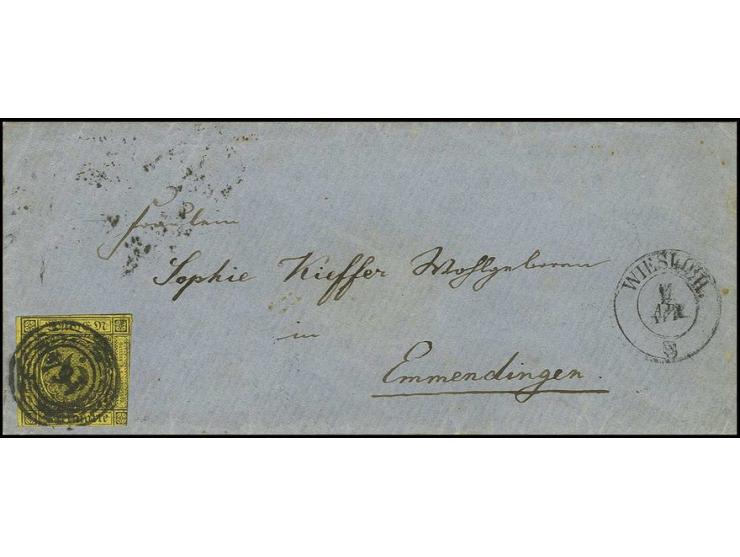 Fräulein
Sophie Kieffer Wohlgeboren
in
Emmendingen.
WIESLOCH.
11
APR